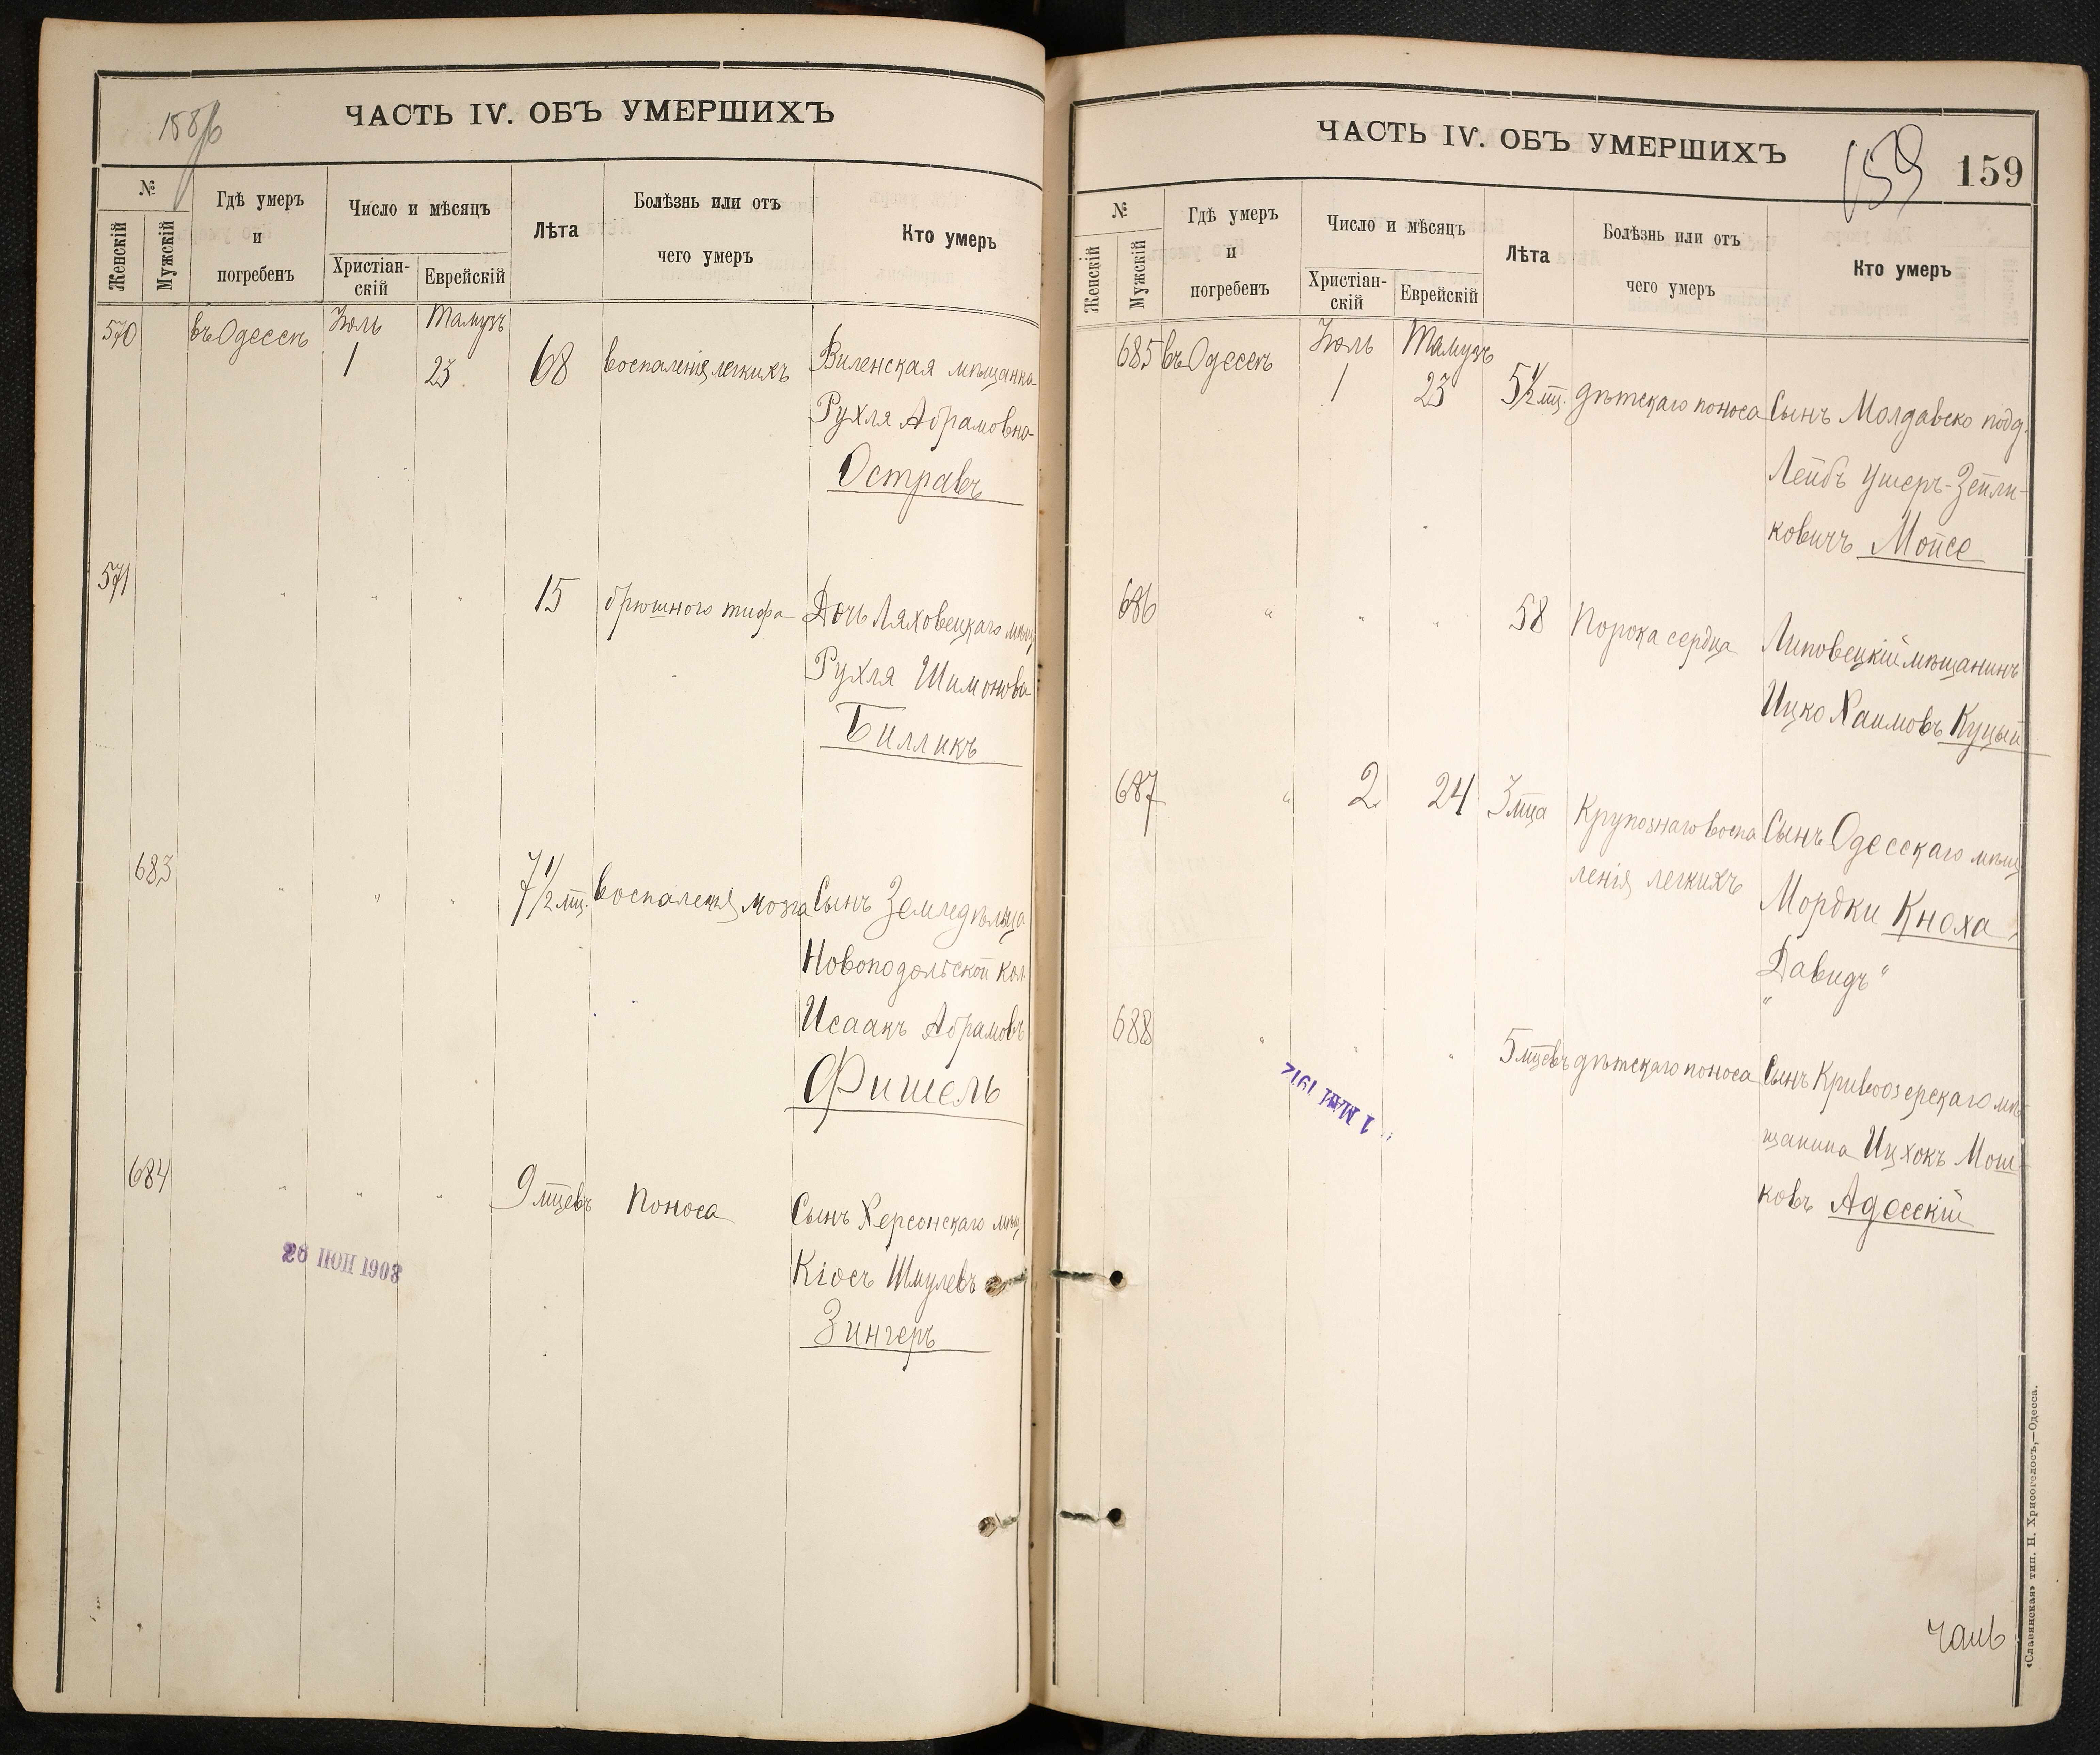 158/б
ЧАСТЬ IV. ОБЪ УМЕРШИХЪ
№
Женскій
Мужскій
Гдѣ умеръ
и
погребенъ
Число и мѣсяцъ
Христіан-
скій
Еврейскій
Лѣта
Болѣзнь или отъ
чего умеръ
Кто умеръ
570 въ Одессѣ Іюль Тамузъ
1 23 68 воспаленія легкихъ Виленская мѣщанка
Рухля Абрамовна
Остравъ
571 " " " 15 брюшного тифа Дочь Ляховецкаго мѣщ.
Рухля Шимонова
Билликъ
683 " " " 7 1/2 мц. воспаленія мозга Сынъ Земледѣльца
Новоподольской кол.
Исаакъ Абрамовъ
Фишель
684 " " " 9 мцевъ Поноса Сынъ Херсонскаго мѣщ
Кіосъ Шмулевъ
Зингеръ
28 ІЮН 1903
ЧАСТЬ IV. ОБЪ УМЕРШИХЪ
159
159
№
Женскій
Мужскій
Гдѣ умеръ
и
погребенъ
Число и мѣсяцъ
Христіан-
скій
Еврейскій
Лѣта
Болѣзнь или отъ
чего умеръ
Кто умеръ
685 въ Одессѣ Іюль Тамузъ
1 23 5 1/2 мц. дѣтскаго поноса Сынъ Молдавско подд.
Лейбъ Ушеръ-Зейли-
ковичъ Мойсе
686 " " " 58 Порока сердца Липовецкій мѣщанинъ
Ицко Хаимовъ Куцый
687 " 2 24 3 мца Крупознаго воспа Сынъ Одесскаго мѣщ
ленія легкихъ Мордки Кноха,
"Давидъ"
688 " " " 5 мцевъ дѣтскаго поноса Сынъ Кривоозерскаго мѣ-
щанина Ицхокъ Мош-
ковъ Адесскій
1 МАЯ 1912
«Славянская» тип. Н. Хрисогелосъ,—Одесса.